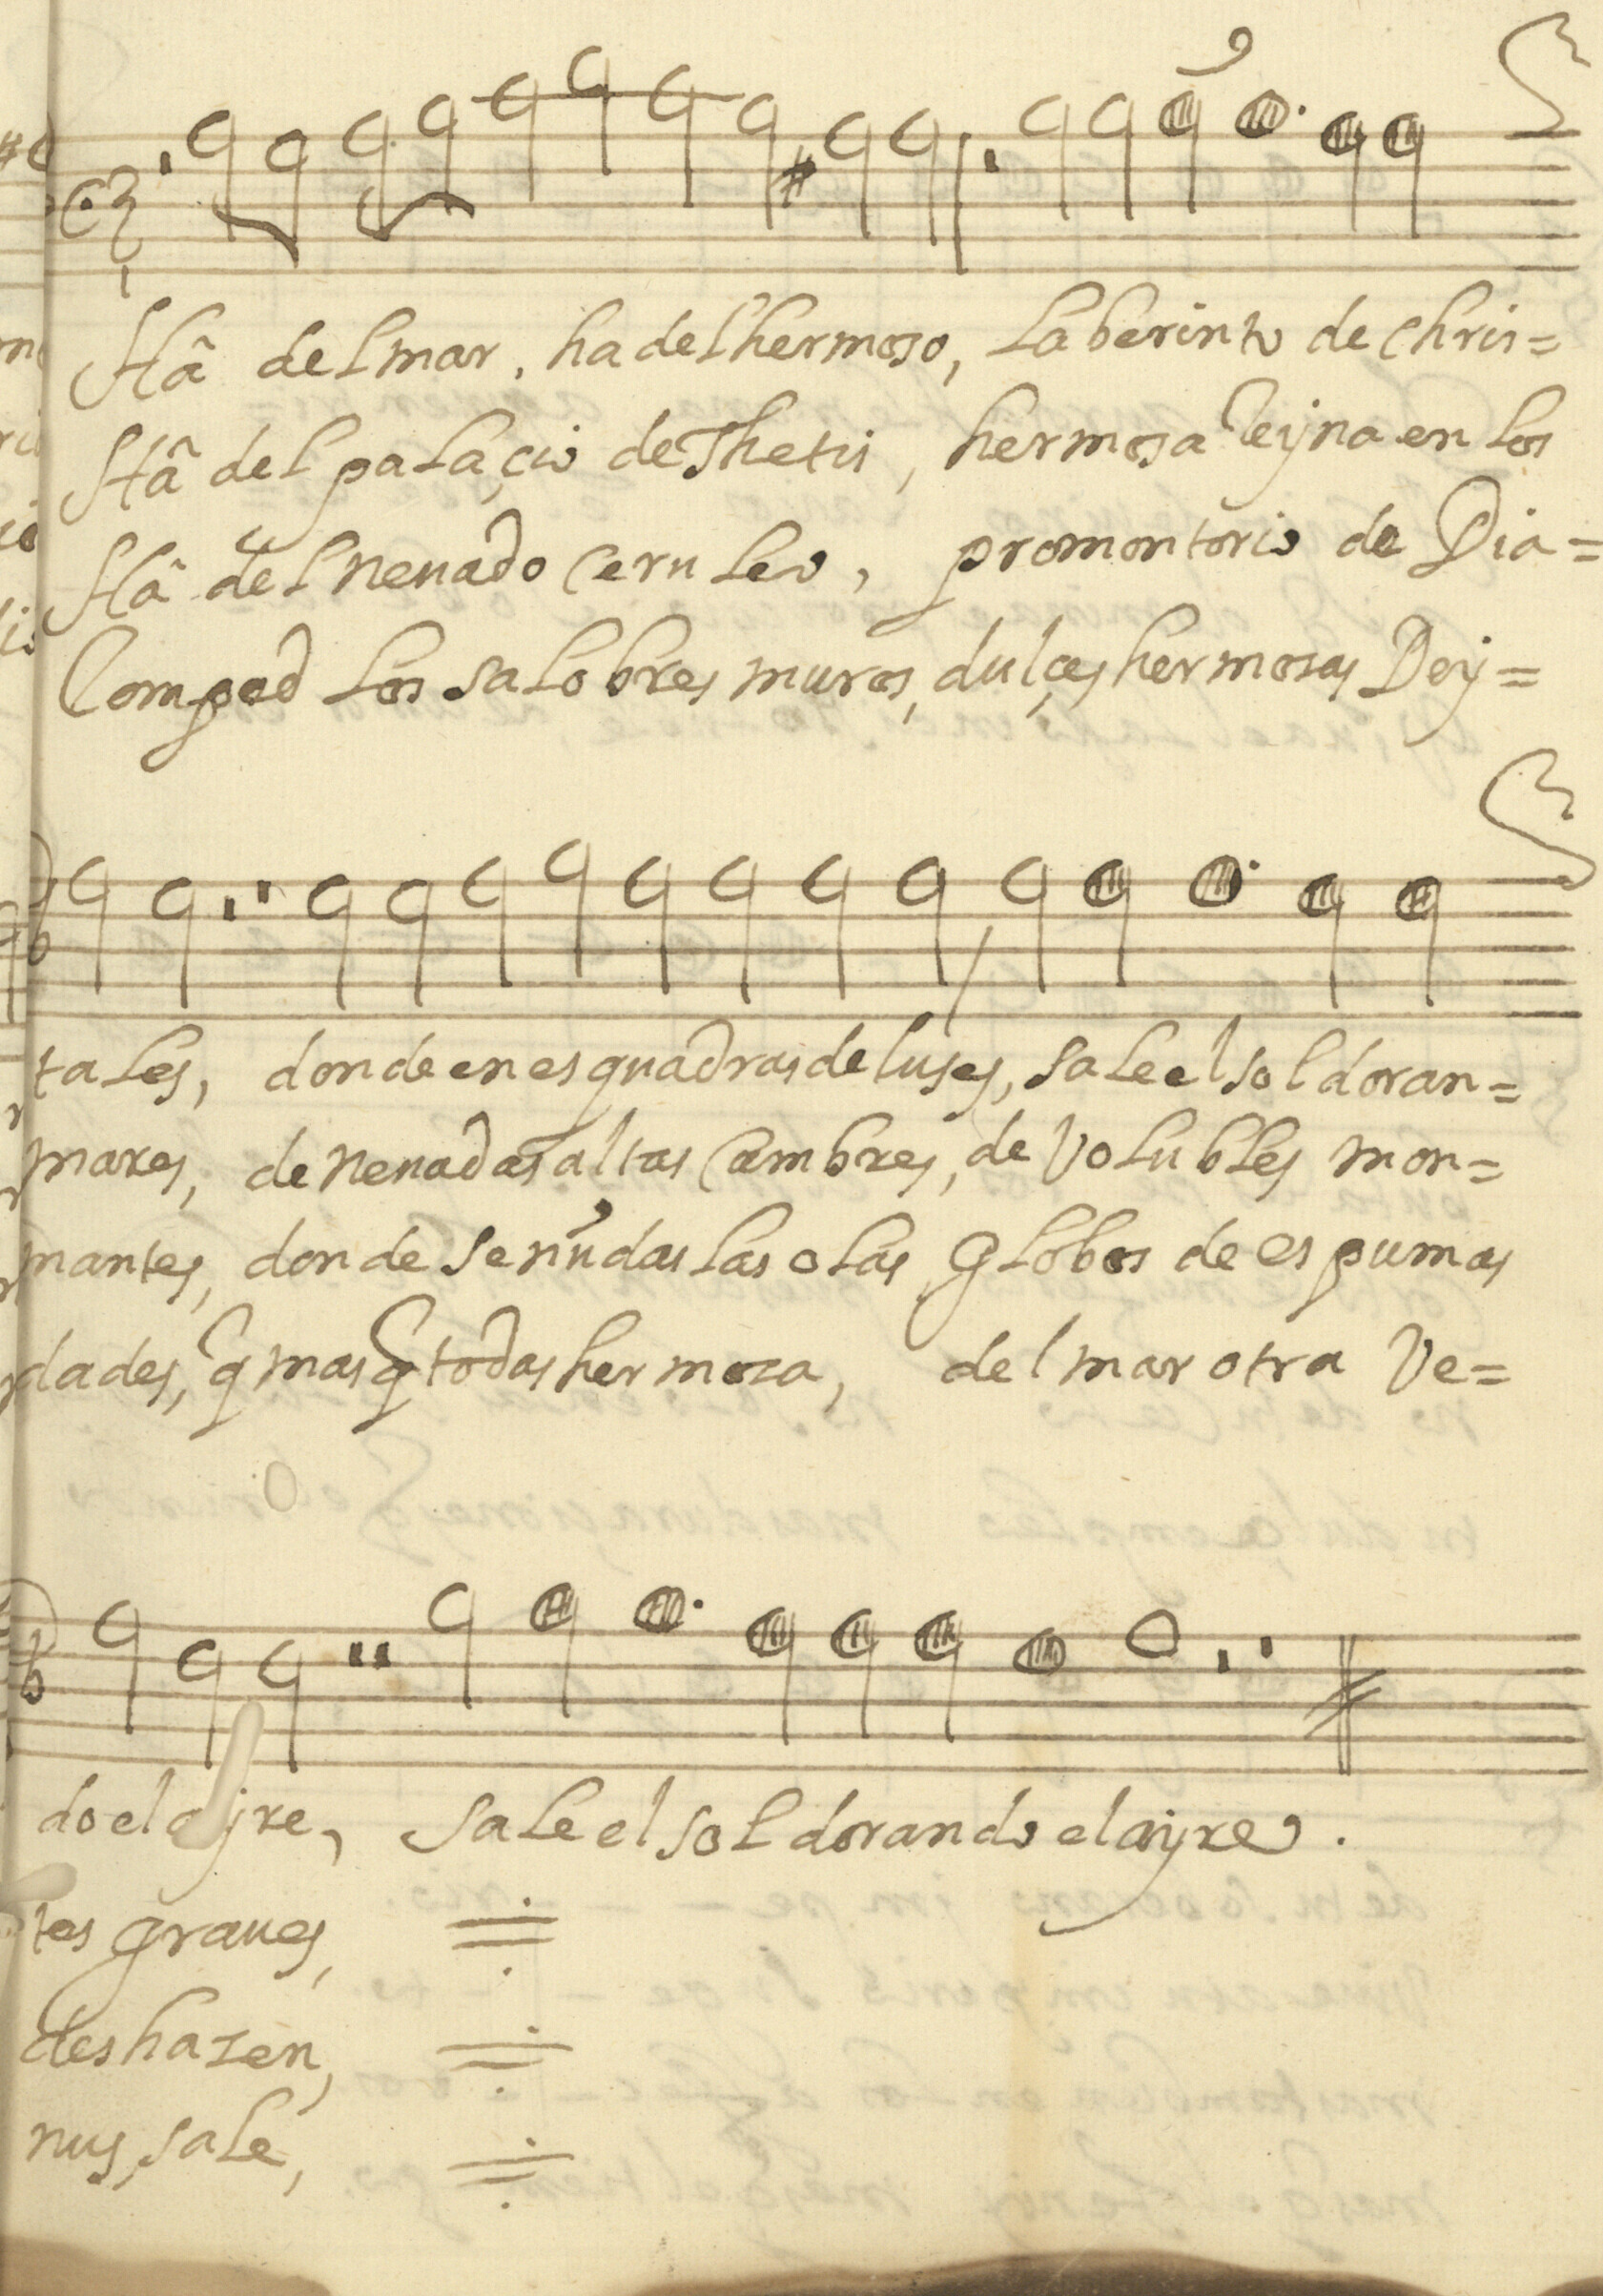 Hâ del mar, ha del hermoso, Laberinto de Chris=
Hâ del palaçio de Thetis, hermosa Reyna en los
Hâ del neuado Ceruleo, promontorio de Dia=
Romped los salobres muros, dulçes hermosas Dey=
tales, donde en esquadras de luses, sale el sol doran=
mares, de neuadas altas Cumbres, de Volubles mon=
mantes, donde senudas las olas Globos de espumas
dades, q mas q todas hermosa, del mar otra Ve=
do el ayre, sale el sol dorando el ayre.
tes graues,
deshazen,
nus, sale,